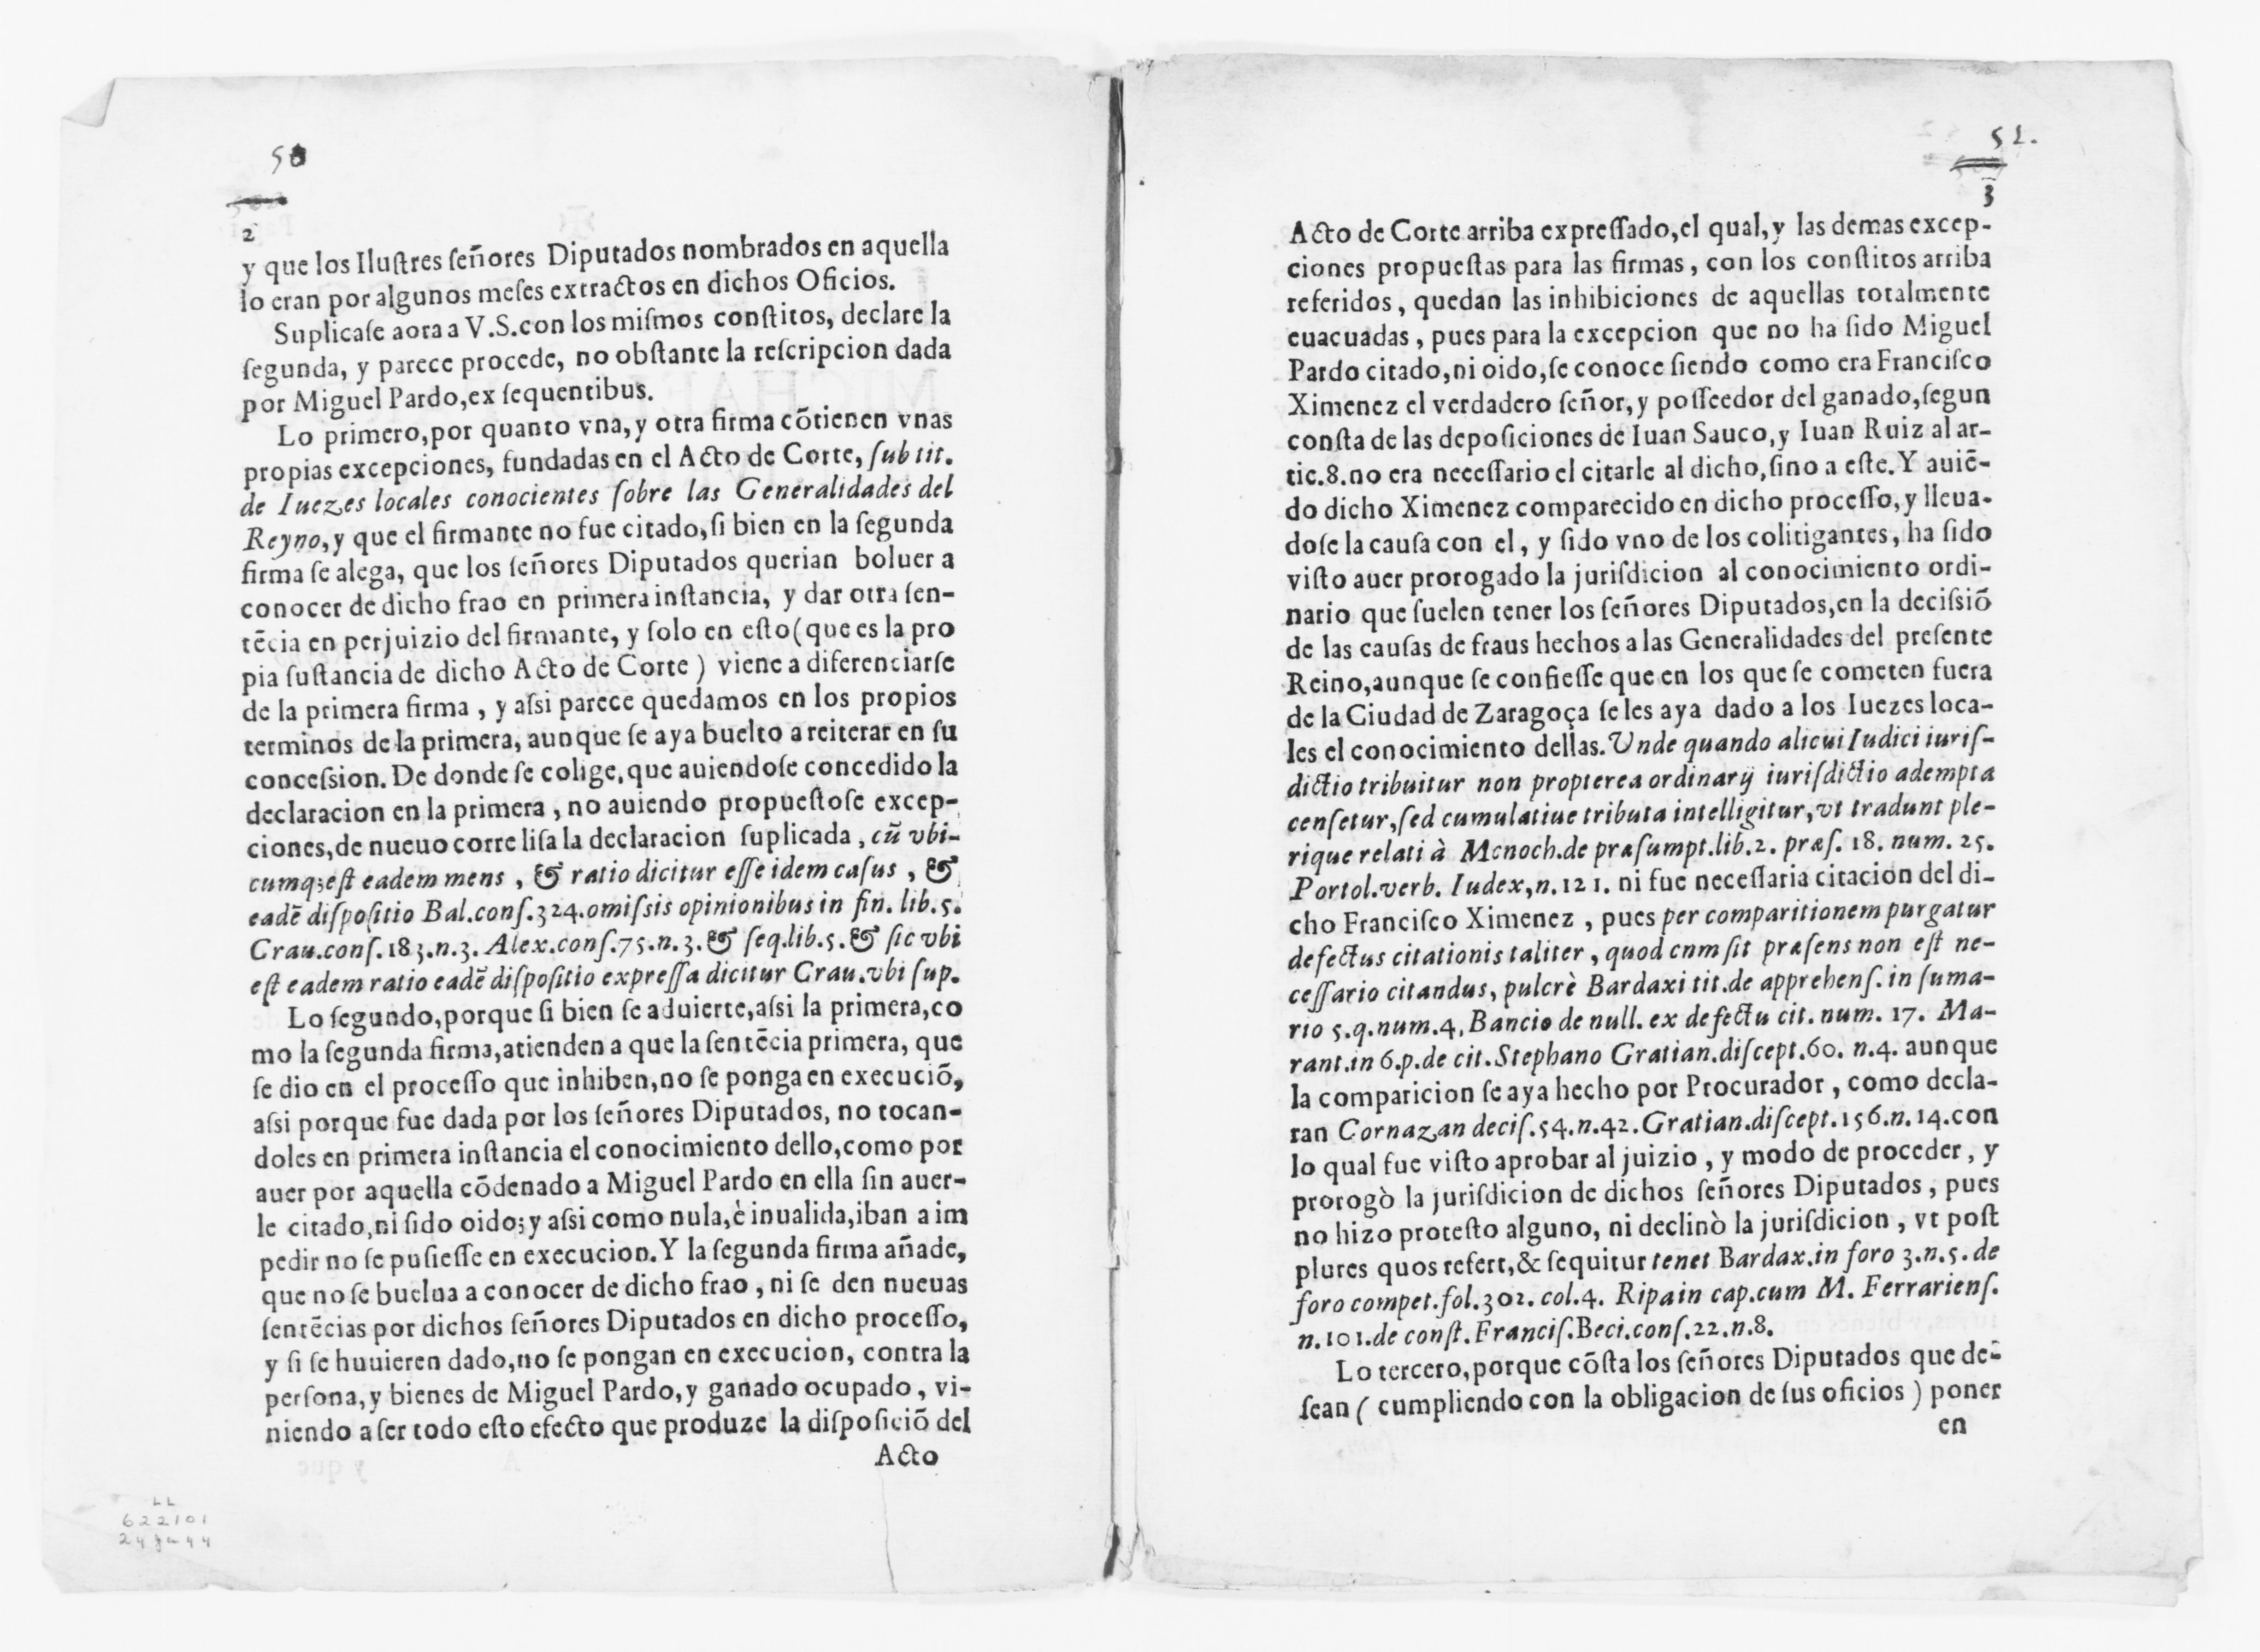 50
2
y que los Iluſtres ſeñores Diputados nombrados en aquella
lo eran por algunos meſes extractos en dichos Oficios.
Suplicaſe aora a V.S.con los miſmos conſtitos, declare la
ſegunda, y parece procede, no obſtante la reſcripcion dada
por Miguel Pardo,ex ſequentibus.
Lo primero,por quanto vna,y otra firma cõtienen vnas
propias excepciones, fundadas en el Acto de Corte, ſub tit.
de Iuezes locales conocientes ſobre las Generalidades del
Reyno,y que el firmante no fue citado,ſi bien en la ſegunda
firma ſe alega, que los ſeñores Diputados querian boluer a
conocer de dicho frao en primera inſtancia, y dar otra ſen-
tẽcia en perjuizio del firmante, y ſolo en eſto(que es la pro
pia ſuſtancia de dicho Acto de Corte) viene a diferenciarſe
de la primera firma , y aſsi parece quedamos en los propios
terminos de la primera, aunque ſe aya buelto a reiterar en ſu
conceſsion. De donde ſe colige,que auiendoſe concedido la
declaracion en la primera , no auiendo propueſtoſe excep-
ciones,de nueuo corre liſa la declaracion ſuplicada , cũ vbi-
cumq;eſt eadem mens , & ratio dicitur eſſe idem caſus , &
eadẽ diſpoſitio Bal.conſ.324.omiſsis opinionibus in fin. lib.5.
Crau.conſ.183.n.3. Alex.conſ.75.n.3.& ſeq.lib.5.& ſic vbi
eſt eadem ratio eadẽ diſpoſitio expreſſa dicitur Crau.vbi ſup.
Lo ſegundo,porque ſi bien ſe aduierte,aſsi la primera,co
mo la ſegunda firma,atienden a que la ſentẽcia primera, que
ſe dio en el proceſſo que inhiben,no ſe ponga en execuciõ,
aſsi porque fue dada por los ſeñores Diputados, no tocan-
doles en primera inſtancia el conocimiento dello,como por
auer por aquella cõdenado a Miguel Pardo en ella ſin auer-
le citado,ni ſido oido;y aſsi como nula,è inualida,iban a im
pedir no ſe puſieſſe en execucion. Y la ſegunda firma añade,
que no ſe buelua a conocer de dicho frao , ni ſe den nueuas
ſentẽcias por dichos ſeñores Diputados en dicho proceſſo,
y ſi ſe huuieren dado,no ſe pongan en execucion, contra la
perſona,y bienes de Miguel Pardo,y ganado ocupado , vi-
niendo a ſer todo eſto efecto que produze la diſpoſiciõ del
Acto
LL
622101
24 ja 44
51.
3
Acto de Corte arriba expreſſado,el qual,y las demas excep-
ciones propueſtas para las firmas , con los conſtitos arriba
referidos , quedan las inhibiciones de aquellas totalmente
euacuadas , pues para la excepcion que no ha ſido Miguel
Pardo citado,ni oido,ſe conoce ſiendo como era Franciſco
Ximenez el verdadero ſeñor,y poſſeedor del ganado,ſegun
conſta de las depoſiciones de Iuan Sauco,y Iuan Ruiz al ar-
tic.8.no era neceſſario el citarle al dicho,ſino a eſte. Y auiẽ-
do dicho Ximenez comparecido en dicho proceſſo,y lleua-
doſe la cauſa con el , y ſido vno de los colitigantes, ha ſido
viſto auer prorogado la juriſdicion al conocimiento ordi-
nario que ſuelen tener los ſeñores Diputados,en la deciſsiõ
de las cauſas de fraus hechos a las Generalidades del preſente
Reino,aunque ſe confieſſe que en los que ſe cometen fuera
de la Ciudad de Zaragoça ſe les aya dado a los Iuezes loca-
les el conocimiento dellas. Unde quando alicui Iudici iuriſ-
dictio tribuitur non propterea ordinarij iuriſdictio adempta
cenſetur,ſed cumulatiue tributa intelligitur,vt tradunt ple-
rique relati à Menoch.de præſumpt.lib.2. præſ. 18. num. 25.
Portol.verb. Iudex,n.121. ni fue neceſſaria citacion del di-
cho Franciſco Ximenez , pues per comparitionem purgatur
defectus citationis taliter , quod cnm ſit præſens non eſt ne-
ceſſario citandus, pulcrè Bardaxi tit.de apprehenſ. in ſuma-
rio 5.q.num.4, Bancio de null. ex defectu cit. num. 17. Ma-
rant.in 6.p.de cit.Stephano Gratian.diſcept.60. n.4. aunque
la comparicion ſe aya hecho por Procurador , como decla-
ran Cornazan deciſ.54.n.42.Gratian.diſcept.156.n.14.con
lo qual fue viſto aprobar al juizio , y modo de proceder , y
prorogò la juriſdicion de dichos ſeñores Diputados , pues
no hizo proteſto alguno, ni declinò la juriſdicion , vt poſt
plures quos refert,& ſequitur tenet Bardax.in foro 3.n.5.de
foro compet.fol.302. col.4. Ripa in cap.cum M. Ferrarienſ.
n.101.de conſt.Franciſ.Beci.conſ.22.n.8.
Lo tercero,porque cõſta los ſeñores Diputados que de-
ſean ( cumpliendo con la obligacion de ſus oficios ) poner
en